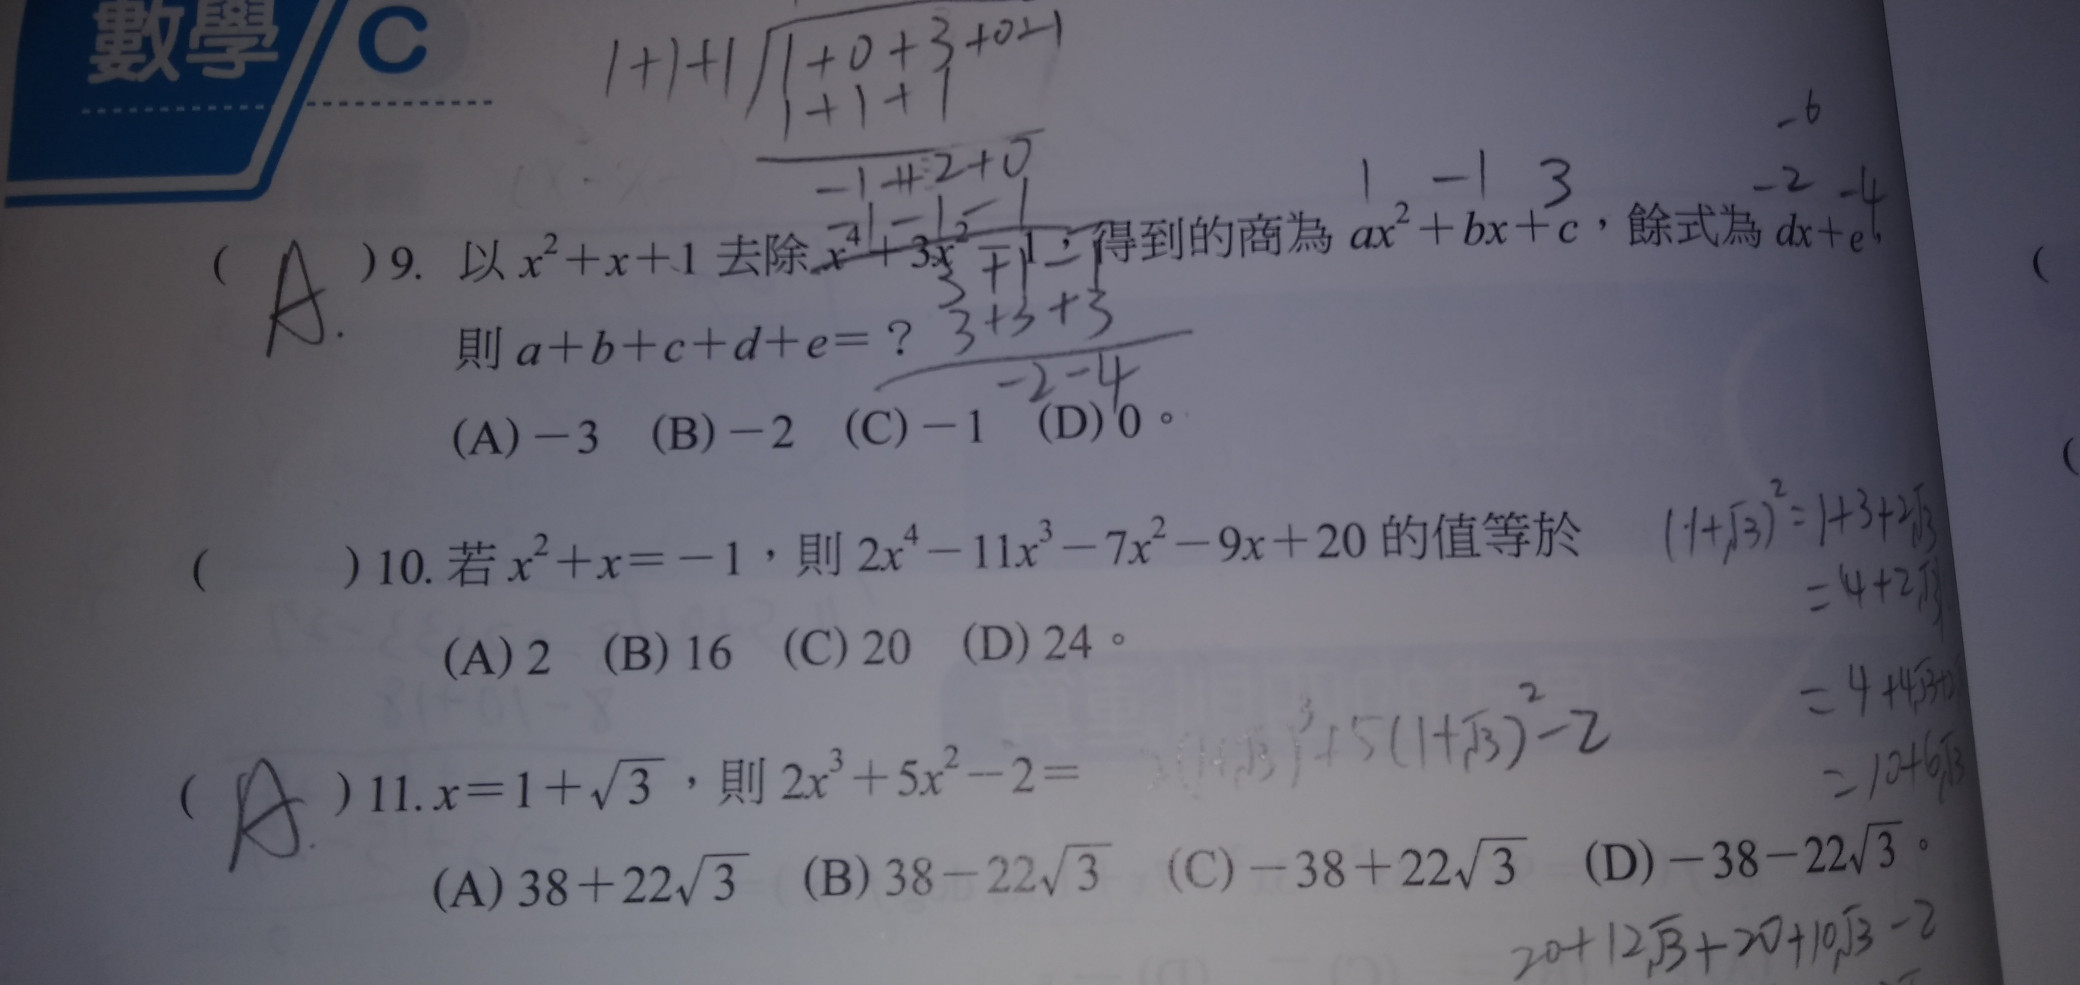 數學 C
1+1+1 1+0+3+0-1
1+1+1
-1+2+0
-1-1-1
1 -1 3 -2 -4
-6
( A. ) 9. 以 x²+x+1 去除 x⁴+3x²-1,得到的商為 ax²+bx+c,餘式為 dx+e,
3+1-1
則 a+b+c+d+e=?
3+3+3
-2-4
(A)-3 (B)-2 (C)-1 (D)0。
( ) 10. 若 x²+x=-1,則 2x⁴-11x³-7x²-9x+20 的值等於
(A) 2 (B) 16 (C) 20 (D) 24。
(1+√3)²=1+3+2√3
=4+2√3
=4+4√3
=10+6√3
( A. ) 11. x=1+√3,則 2x³+5x²-2=
(1+√3)³+5(1+√3)²-2
(A) 38+22√3 (B) 38-22√3 (C)-38+22√3 (D)-38-22√3。
20+12√3+20+10√3-2